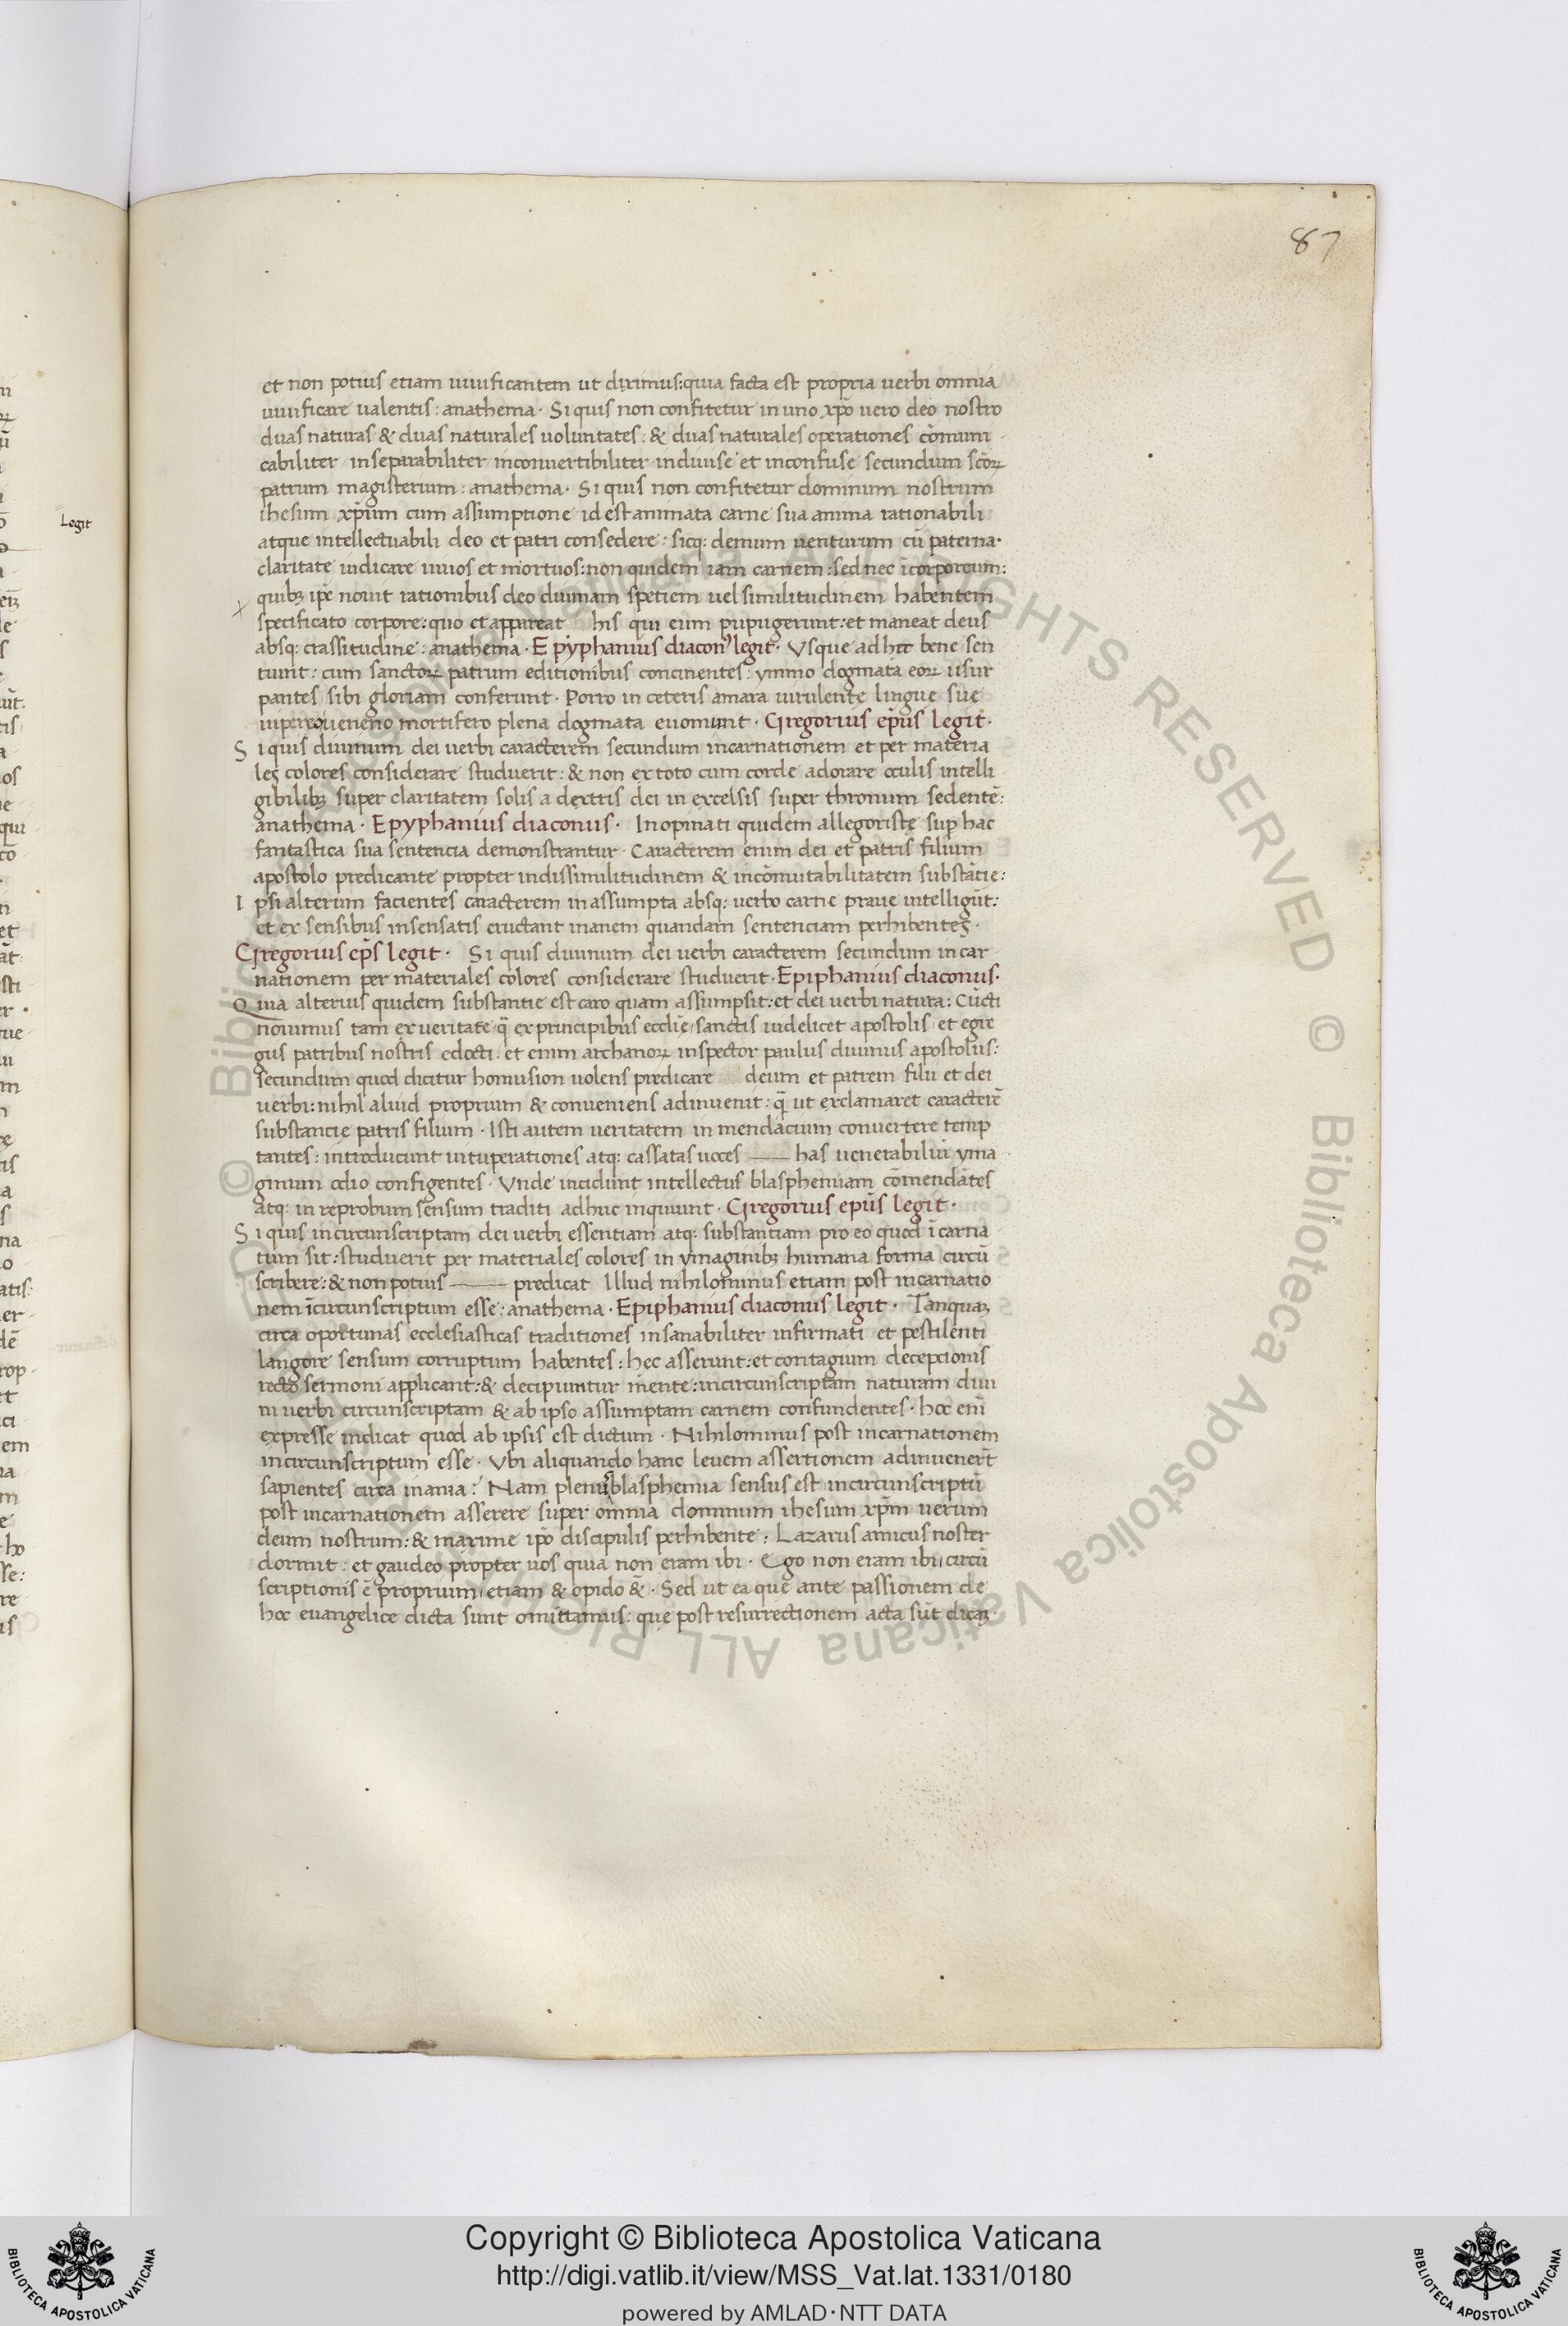 87
et non potius etiam uiuificantem ut diximus: quia facta est propria uerbi omnia
uiuificare ualentis: anathema. Si quis non confitetur in uno xp̄o uero deo nostro
duas naturas & duas naturales uoluntates: & duas naturales operationes cōmuni
cabiliter inseparabiliter inconuertibiliter indiuise et inconfuse secundum sctōꝝ
patrum magisterium: anathema. Si quis non confitetur dominum nostrum
ihesum xp̄um cum assumptione id est animata carne sua anima rationabili
atque intellectuabili deo et patri consedere: sicq: demum uenturum cū paterna
claritate iudicare uiuos et mortuos: non quidem iam carnem: sed nec īcorporeum:
quibꝫ ip̄e nouit rationibus deo diuinam spetiem uel similitudinem habentem
specificato corpore: quo et appareat his qui eum pupugerunt: et maneat deus
absq: crassitudine: anathema. Epyphanius diaconꝰ legit. Vsque ad hec bene sen
tiunt: cum sanctoꝝ patrum editionibus concinentes: ymmo dogmata eoꝝ usur
pantes sibi gloriam conferunt. Porro in ceteris amara uirulente lingue sue
uipereo ueneno mortifero plena dogmata euomunt. Gregorius ep̄us legit.
Si quis diuinum dei uerbi caracterem secundum incarnationem et per materia
les colores considerare studuerit: & non ex toto cum corde adorare oculis intelli
gibilibꝫ super claritatem solis a dextris dei in excelsis super thronum sedentē:
anathema. Epyphanius diaconus. Inopinati quidem allegoristę sup hac
fantastica sua sentencia demonstrantur. Caracterem enim dei et patris filium
apostolo predicante propter indissimilitudinem & incōmutabilitatem substātie:
Ipsi alterum facientes caracterem in assumpta absq: uerbo carne praue intelligūt:
et ex sensibus insensatis eructant inanem quandam sentenciam perhibentes.
Gregorius ep̄s legit. Si quis diuinum dei uerbi caracterem secundum incar
nationem per materiales colores considerare studuerit. Epiphanius diaconus.
Quia alterius quidem substantie est caro quam assumpsit: et dei uerbi natura: Cūcti
nouimus tam ex ueritate q̄ ex principibus eccl̄ie sanctis uidelicet apostolis et egre
giis patribus nostris edocti. et enim archanoꝝ inspector paulus diuinus apostolus:
secundum quod dicitur homusion uolens predicare deum et patrem filii et dei
uerbi: nihil aliud proprium & conueniens adinuenit: q̄ ut exclamaret caracterē
substancie patris filium. Isti autem ueritatem in mendacium conuertere temp
tantes: introducunt uituperationes atq: cassatas uoces —— has uenerabiliū yma
ginum odio configentes. Vnde incidunt intellectus blasphemiam cōmendātes
atq: in reprobum sensum traditi adhuc inquiunt. Gregorius epūs legit.
Si quis incircunscriptam dei uerbi essentiam atq: substantiam pro eo quod īcarna
tum sit: studuerit per materiales colores in ymaginibꝫ humana forma circū
scribere: & non potius —— predicat Illud nihilominus etiam post incarnatio
nem īcircunscriptum esse: anathema. Epiphanius diaconus legit. Tanquaꝫ
circa oportunas ecclesiasticas traditiones insanabiliter infirmati et pestilenti
langore sensum corruptum habentes: hec asserunt: et contagium decepcionis
recto sermoni applicant: & decipiuntur mente: incircunscriptam naturam diui
ni uerbi circunscriptam & ab ipso assumptam carnem confundentes. hoc enī
expresse indicat quod ab ipsis est dictum. Nihilominus post incarnationem
incircunscriptum esse. Vbi aliquando hanc leuem assertionem adinuenerūt
sapientes circa inania? Nam plenus blasphemia sensus est incircunscriptū
post incarnationem asserere super omnia dominum ihesum xp̄m uerum
deum nostrum: & maxime ip̄o discipulis perhibente: Lazarus amicus noster
dormit: et gaudeo propter uos quia non eram ibi. Ego non eram ibi: circū
scriptionis ē proprium etiam & opido &̄. Sed ut ea que ante passionem de
hoc euangelice dicta sunt omittamus: que post resurrectionem acta sūt dicaꝫ.
Legit
Copyright © Biblioteca Apostolica Vaticana
http://digi.vatlib.it/view/MSS_Vat.lat.1331/0180
powered by AMLAD・NTT DATA
BIBLIOTECA APOSTOLICA VATICANA
BIBLIOTECA APOSTOLICA VATICANA
© Biblioteca Apostolica Vaticana ALL RIGHTS RESERVED © Biblioteca Apostolica Vaticana ALL RIGHTS RESERVED